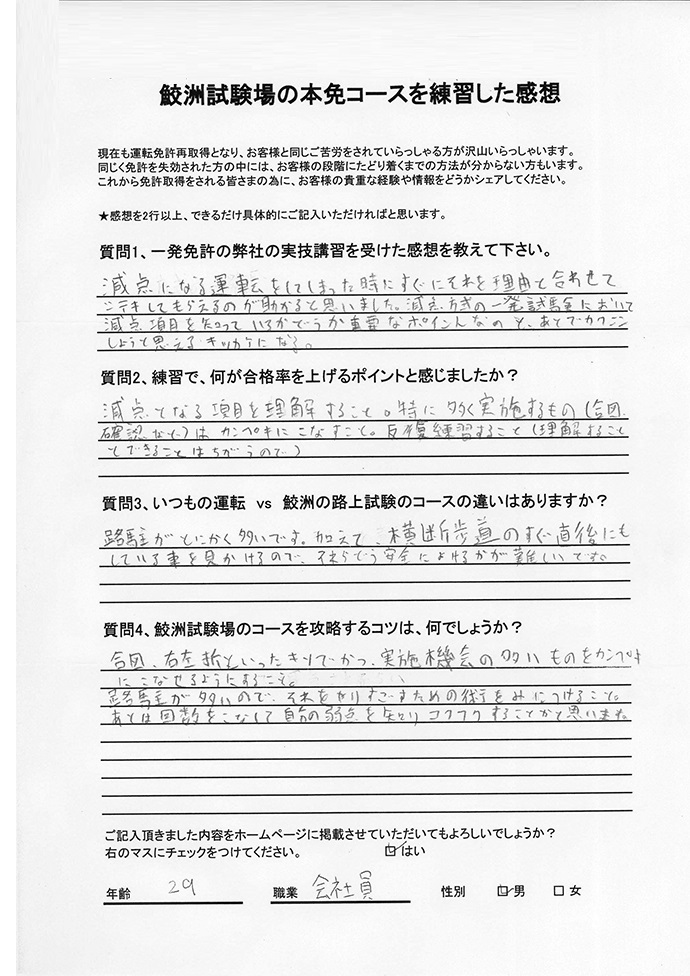 鮫洲試験場の本免コースを練習した感想
現在も運転免許再取得となり、お客様と同じご苦労をされていらっしゃる方が沢山いらっしゃいます。
同じく免許を失効された方の中には、お客様の段階にたどり着くまでの方法が分からない方もいます。
これから免許取得をされる皆さまの為に、お客様の貴重な経験や情報をどうかシェアしてください。
★感想を2行以上、できるだけ具体的にご記入いただければと思います。
質問1、一発免許の弊社の実技講習を受けた感想を教えて下さい。
減点になる運転をしてしまった時にすぐにそれを理由と合わせて
シテキしてもらえるのが助かると思いました。減点方式の一発試験において
減点項目を知っているかどうか重要なポイントなのと、あとでカクニン
しようと思えるキッカケになる。
質問2、練習で、何が合格率を上げるポイントと感じましたか？
減点となる項目を理解すること。特に多く実施するもの(合図、
確認など)はカンペキにこなすこと。反復練習すること(理解すること
とできることはちがうので)
質問3、いつもの運転 vs 鮫洲の路上試験のコースの違いはありますか？
路駐がとにかく多いです。加えて、横断歩道のすぐ直後にも
している車を見かけるので、それらをどう安全によけるかが難しいです。
質問4、鮫洲試験場のコースを攻略するコツは、何でしょうか？
合図、右左折といったキソでかつ、実施機会の多いものをカンペキ
にこなせるようにすること。
路駐が多いので、それをやりすごすための術をみにつけること。
あとは回数をこなして自分の弱点を知りコクフクすることかと思います。
ご記入頂きました内容をホームページに掲載させていただいてもよろしいでしょうか？
右のマスにチェックをつけてください。 ☑はい
年齢 29 職業 会社員 性別 ☑男 □女